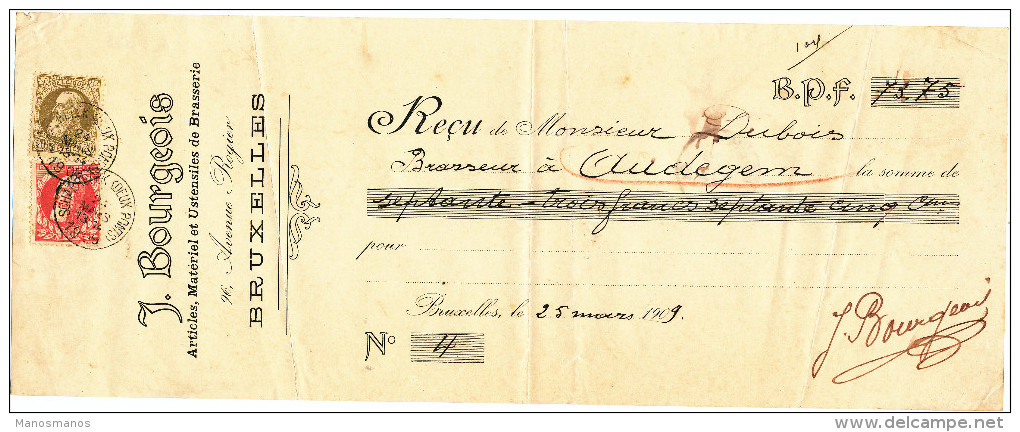 J. Bourgeois
Articles, Matériel et Ustensiles de Brasserie
96, Avenue Rogier
BRUXELLES
104
B.P.F. 73.75
Reçu de Monsieur Dubois
Brasseur à Audegem la somme de
septante-trois francs septante cinq cmes
pour
Bruxelles, le 25 mars 1909.
No 4
J. Bourgeois
Manosmanos
delcampe.net